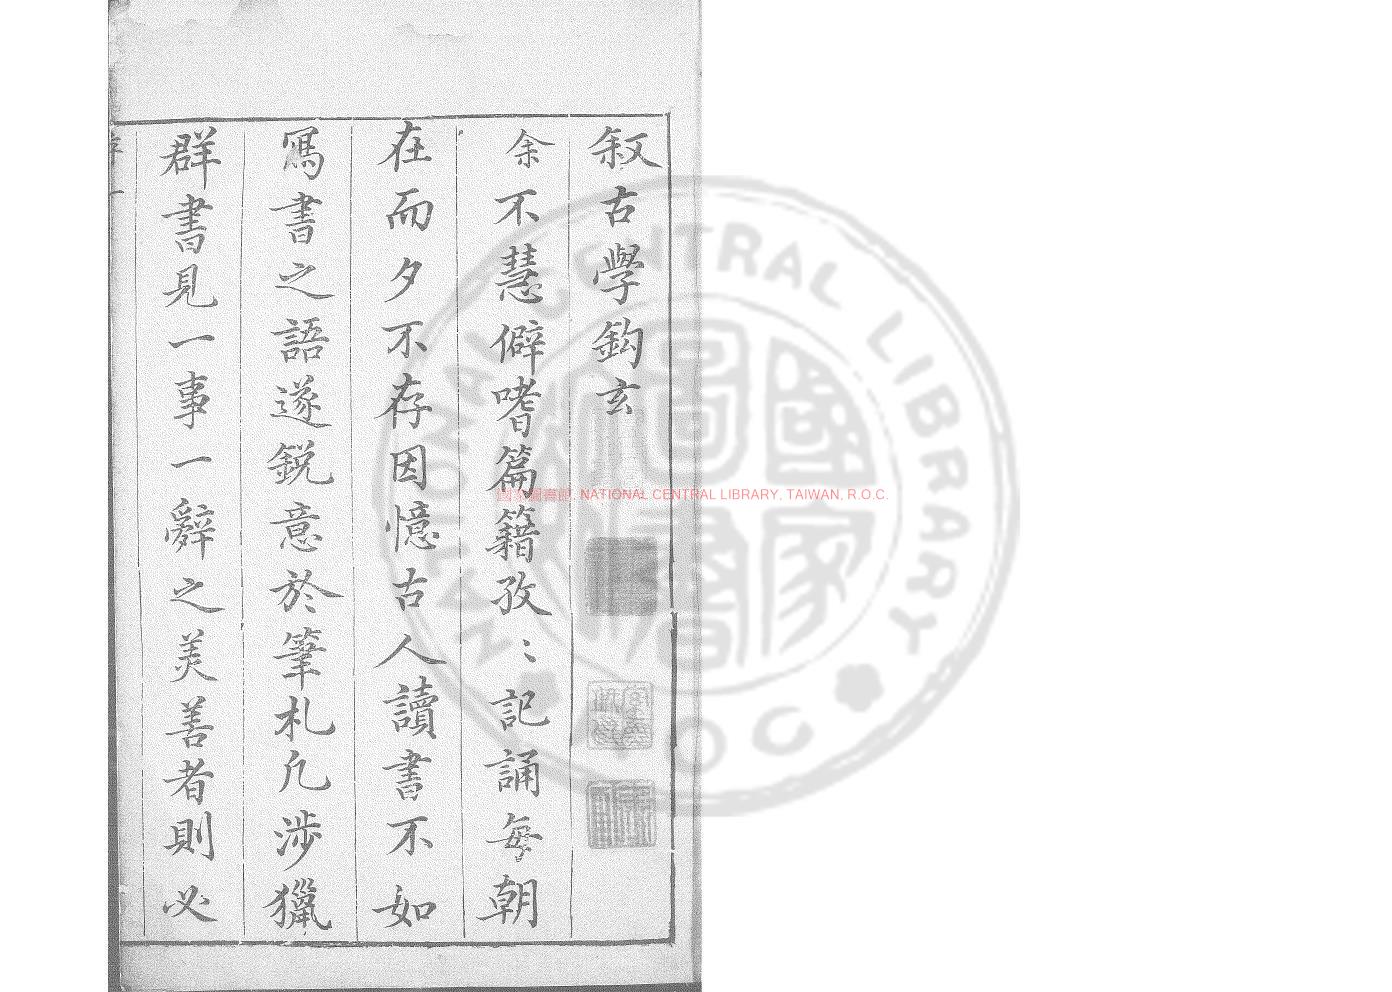 叙古學鈎玄
余不慧僻嗜篇籍孜〻記誦每朝
在而夕不存因憶古人讀書不如
寫書之語遂鋭意於筆札凢涉獵
群書見一事一辭之美善者則必
國家圖書館, NATIONAL CENTRAL LIBRARY, TAIWAN, R.O.C.
NATIONAL CENTRAL LIBRARY
國家圖書
R.O.C